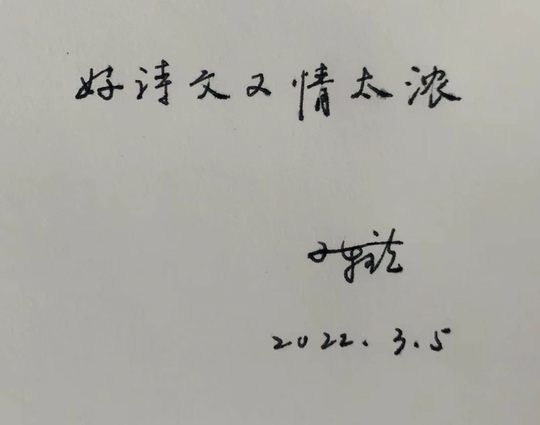 好诗文又情太浓
2022.3.5